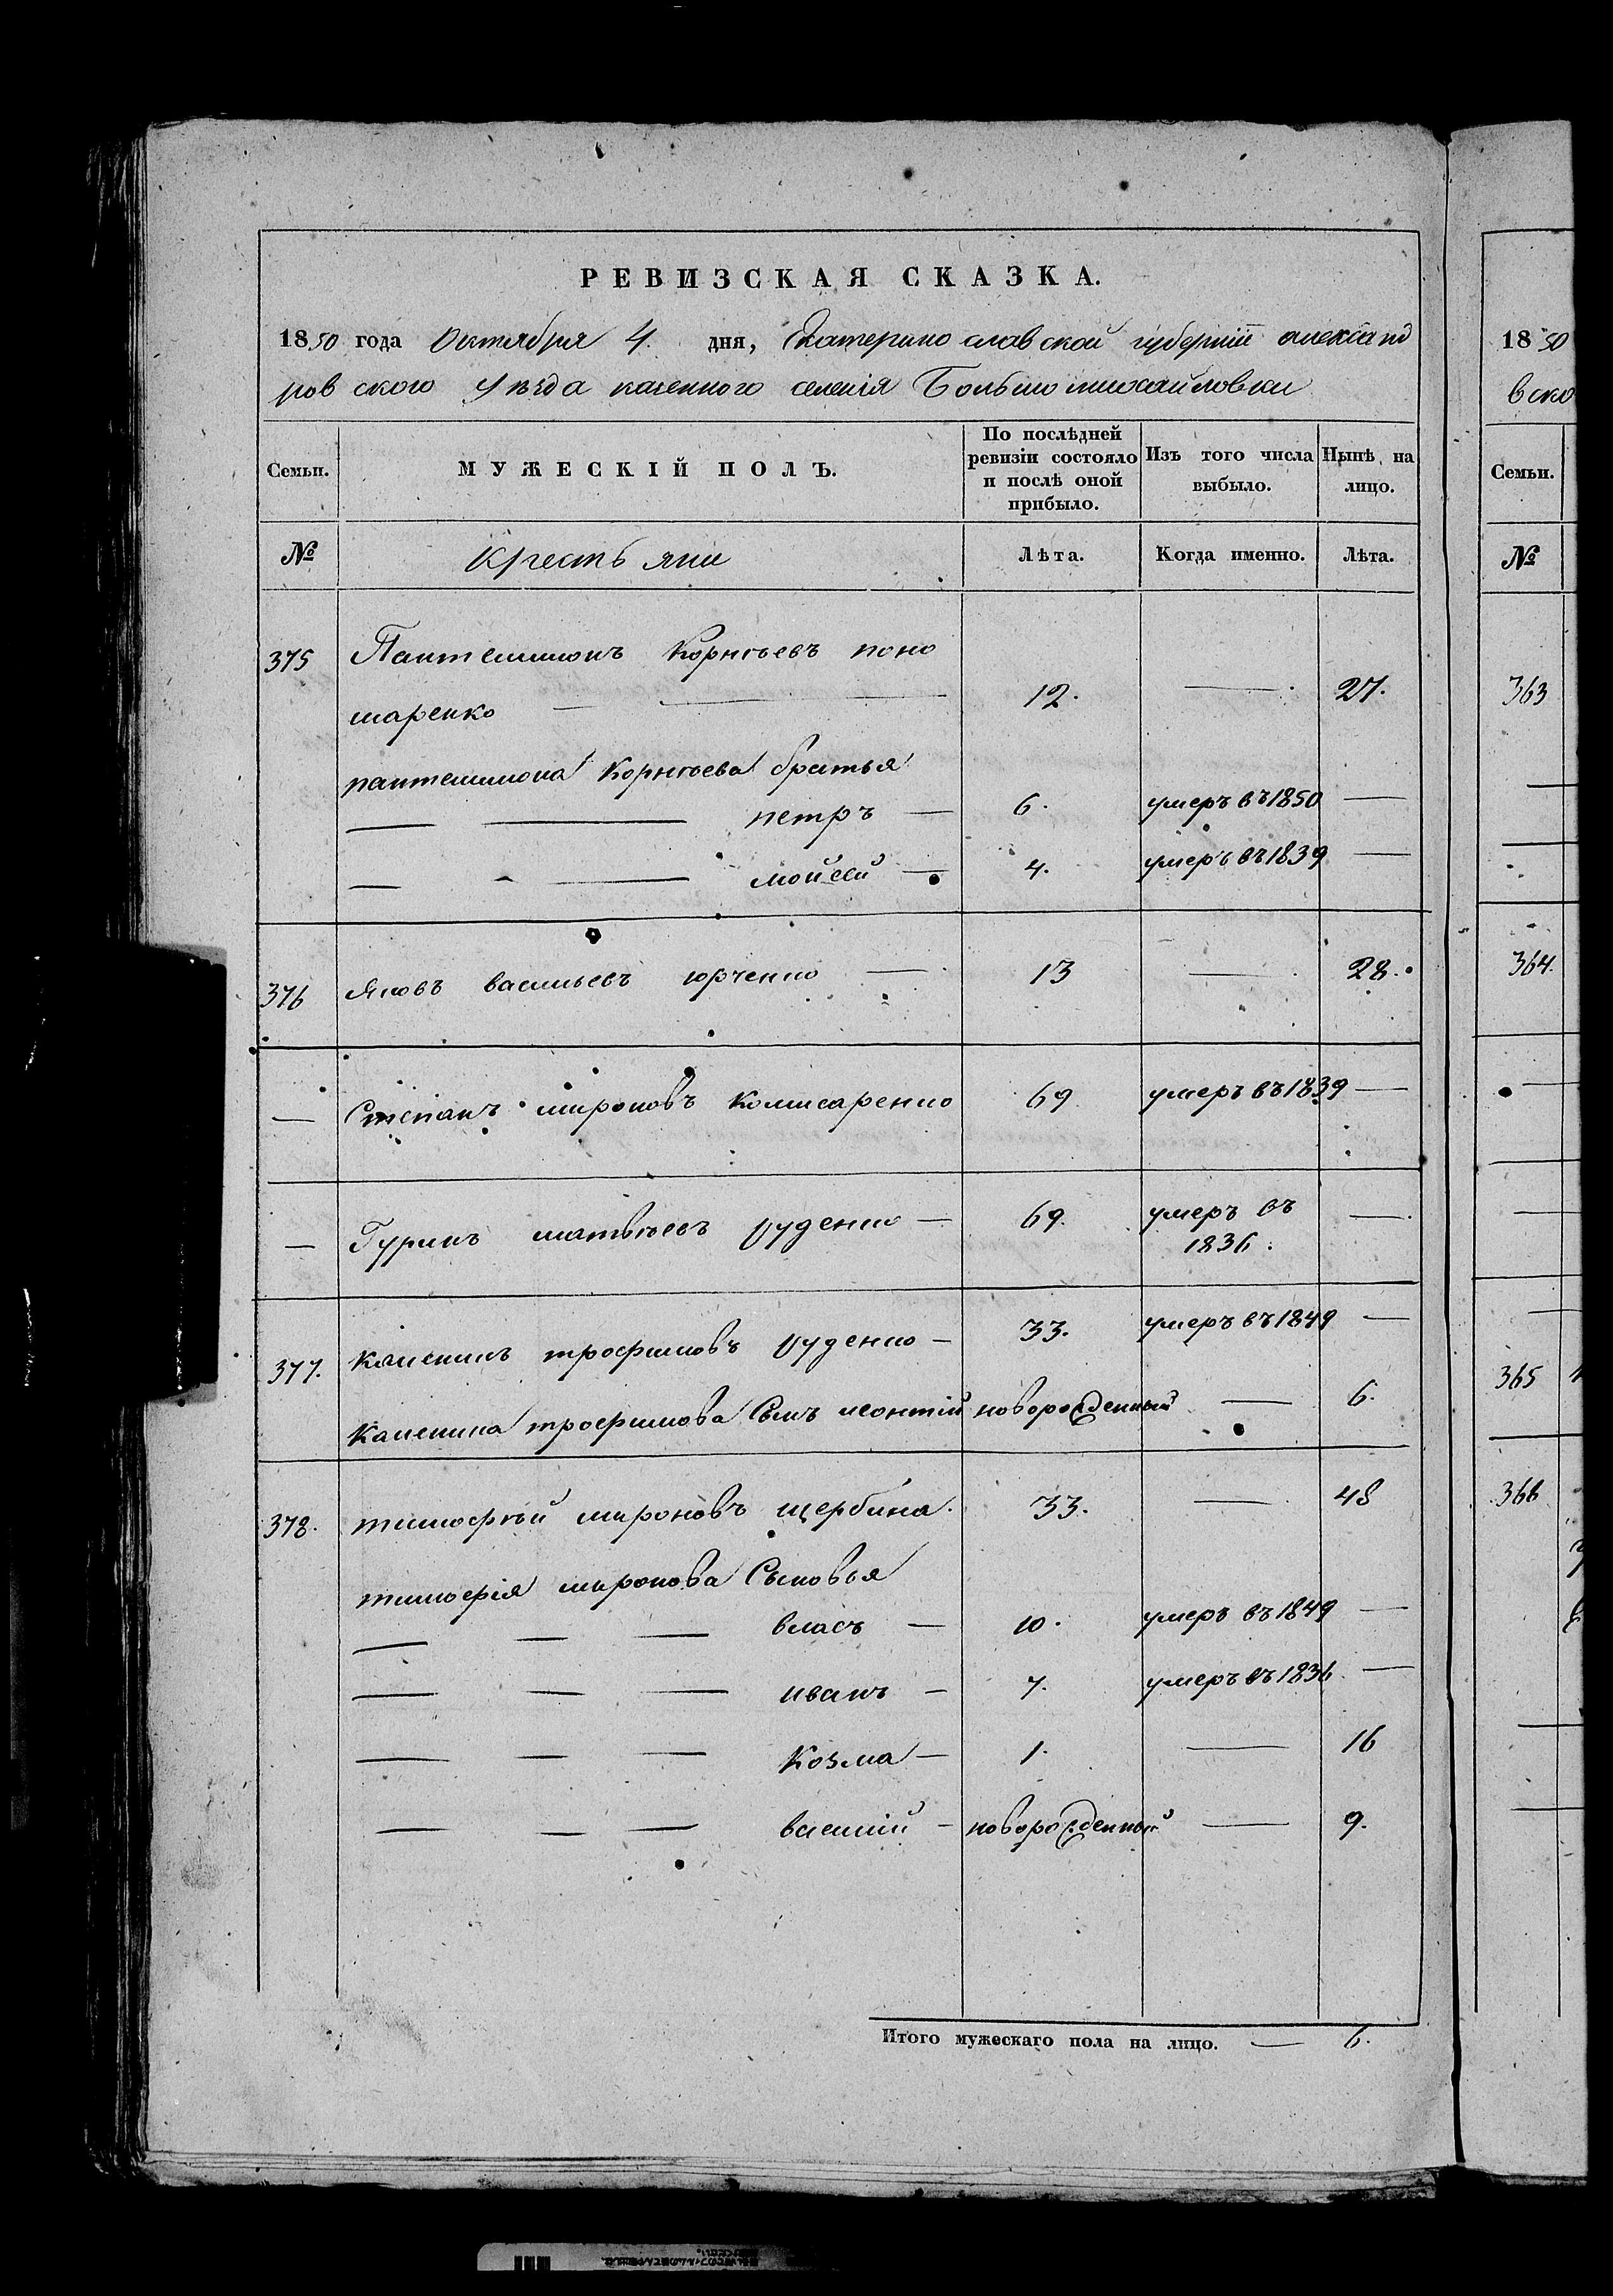 РЕВИЗСКАЯ СКАЗКА.
1850 года Октября 4. дня, Екатерино славской губернiи александ
ров ского Уѣзда казенного селенiя Большомихайловки
Семьи.
МУЖЕСКIЙ ПОЛЪ.
По послѣдней ревизiи состояло и послѣ оной прибыло.
Изъ того числа выбыло.
Нынѣ на лицо.
№ Крестьяни Лѣта. Когда именно. Лѣта.
375 Пантелимонъ Корнѣевъ поно
маренко — — — 12. — 27.
пантелимона Корнѣева братья
— — петръ — 6. умеръ въ 1850 —
— — мойсей — 4. умеръ въ 1839 —
376 Яковъ васильевъ юрченко — 13 — 28.
— Степанъ мироновъ Комисаренко 69 умеръ въ 1839 —
— Гуринъ матвѣевъ руденко — 69. умеръ въ —
1836.
377. Каленикъ трофимовъ руденко — 33. умеръ въ 1849 —
Каленика трофимова Сынъ леонтiй новорожденный — 6.
378. тимофѣй мироновъ щербина. 33. — 48
тимофiя миронова Сыновья
— — — власъ — 10. умеръ въ 1849 —
— — — иванъ — 7. умеръ въ 1836. —
— — — Козма — 1. — 16
— — — василiй — новорожденный — 9.
Итого мужескаго пола на лицо. — 6.
1850
вско
Семьи.
№
363
364.
365
366